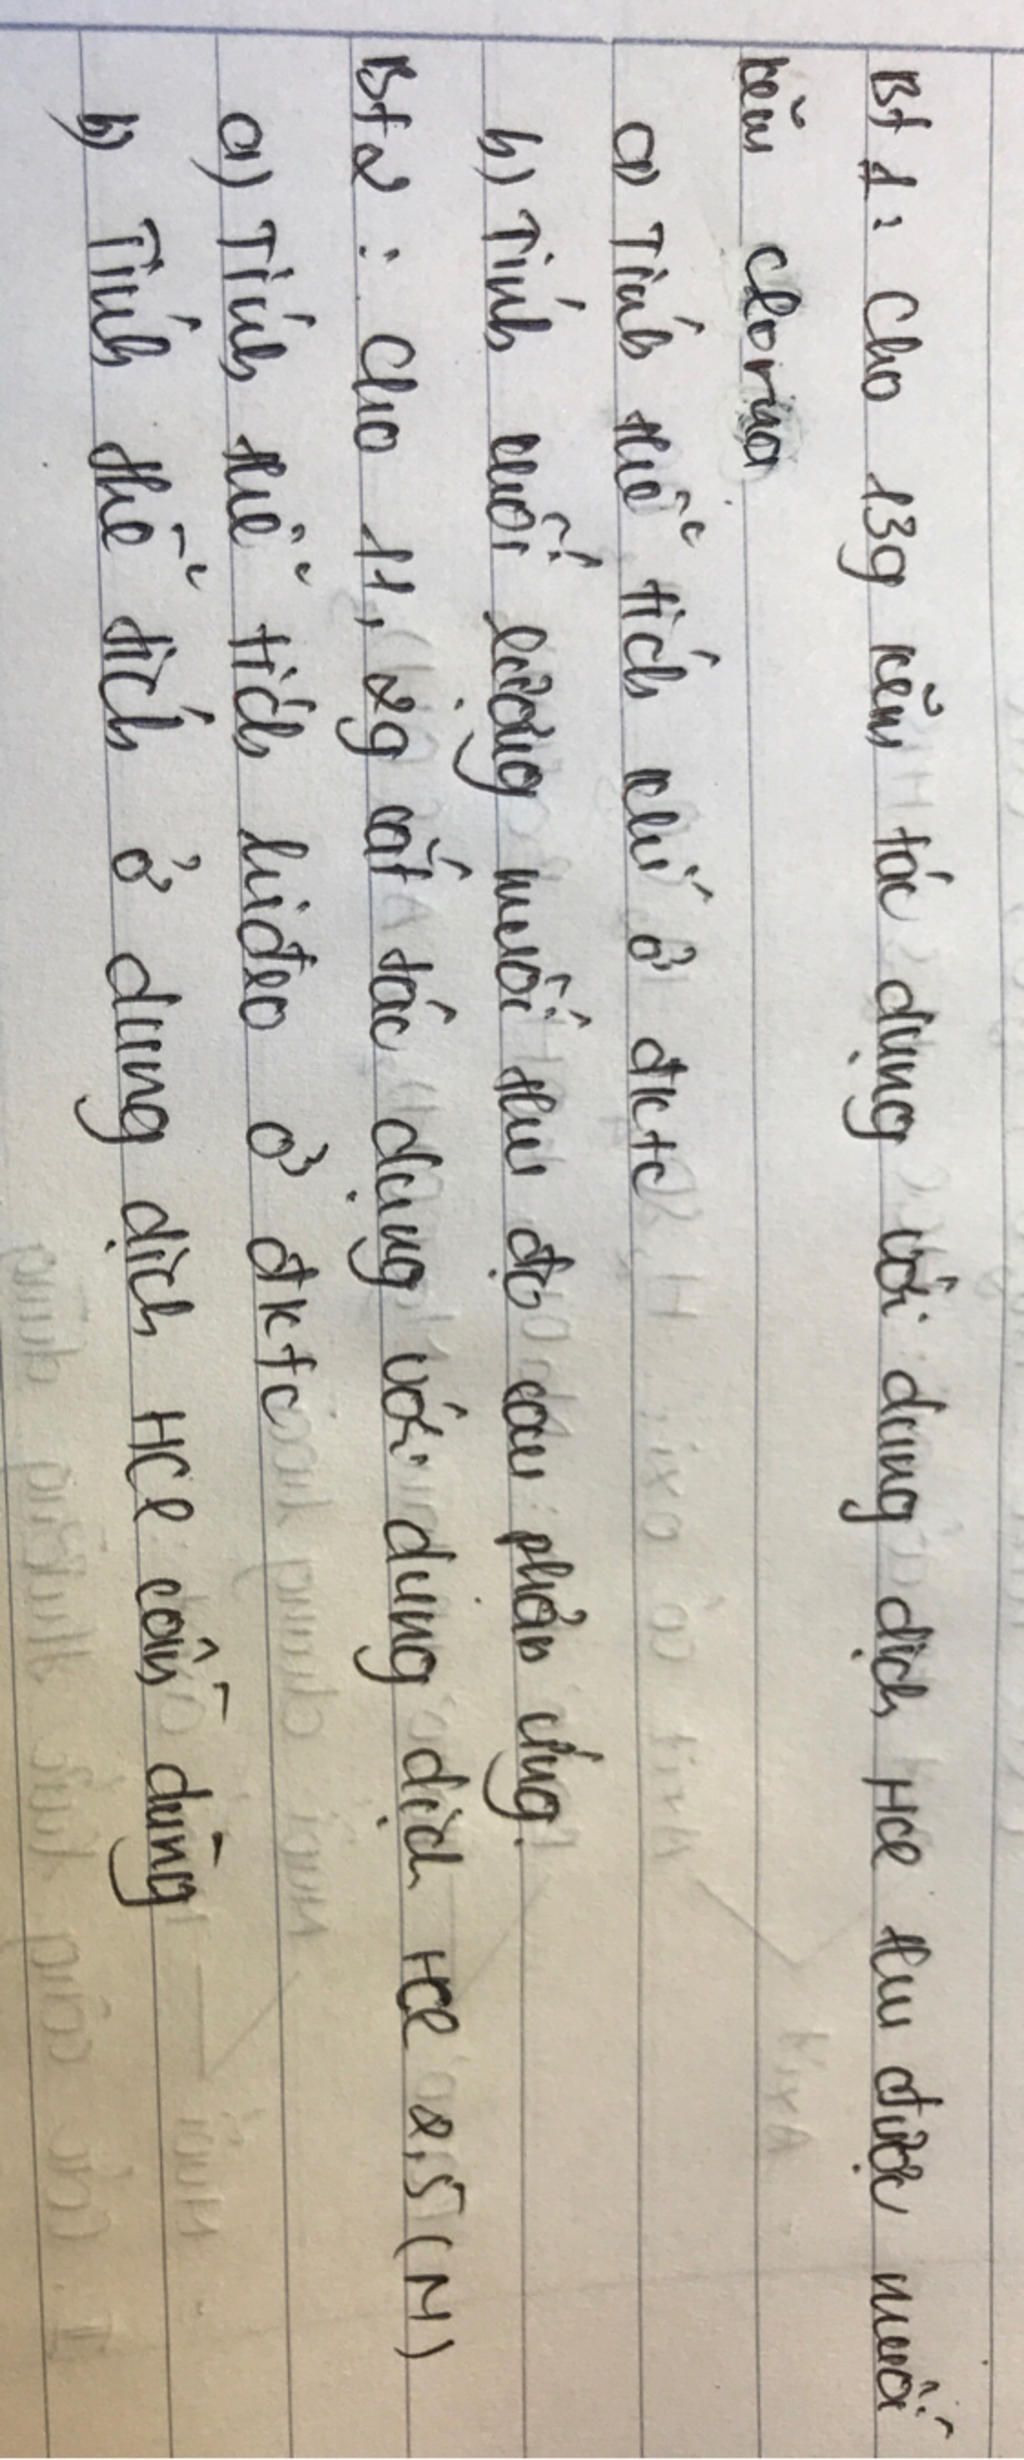 BT 1: Cho 13g kẽm tác dụng với dung dịch HCl thu được muối
kẽm clorua
a) Tính thể tích khí ở đktc
b) Tính khối lượng muối thu đc sau phản ứng.
BT2: Cho 11,2g sắt tác dụng với dung dịch HCl 2,5 (M)
a) Tính thể tích hiđro ở đktc
b) Tính thể tích ở dung dịch HCl cần dùng